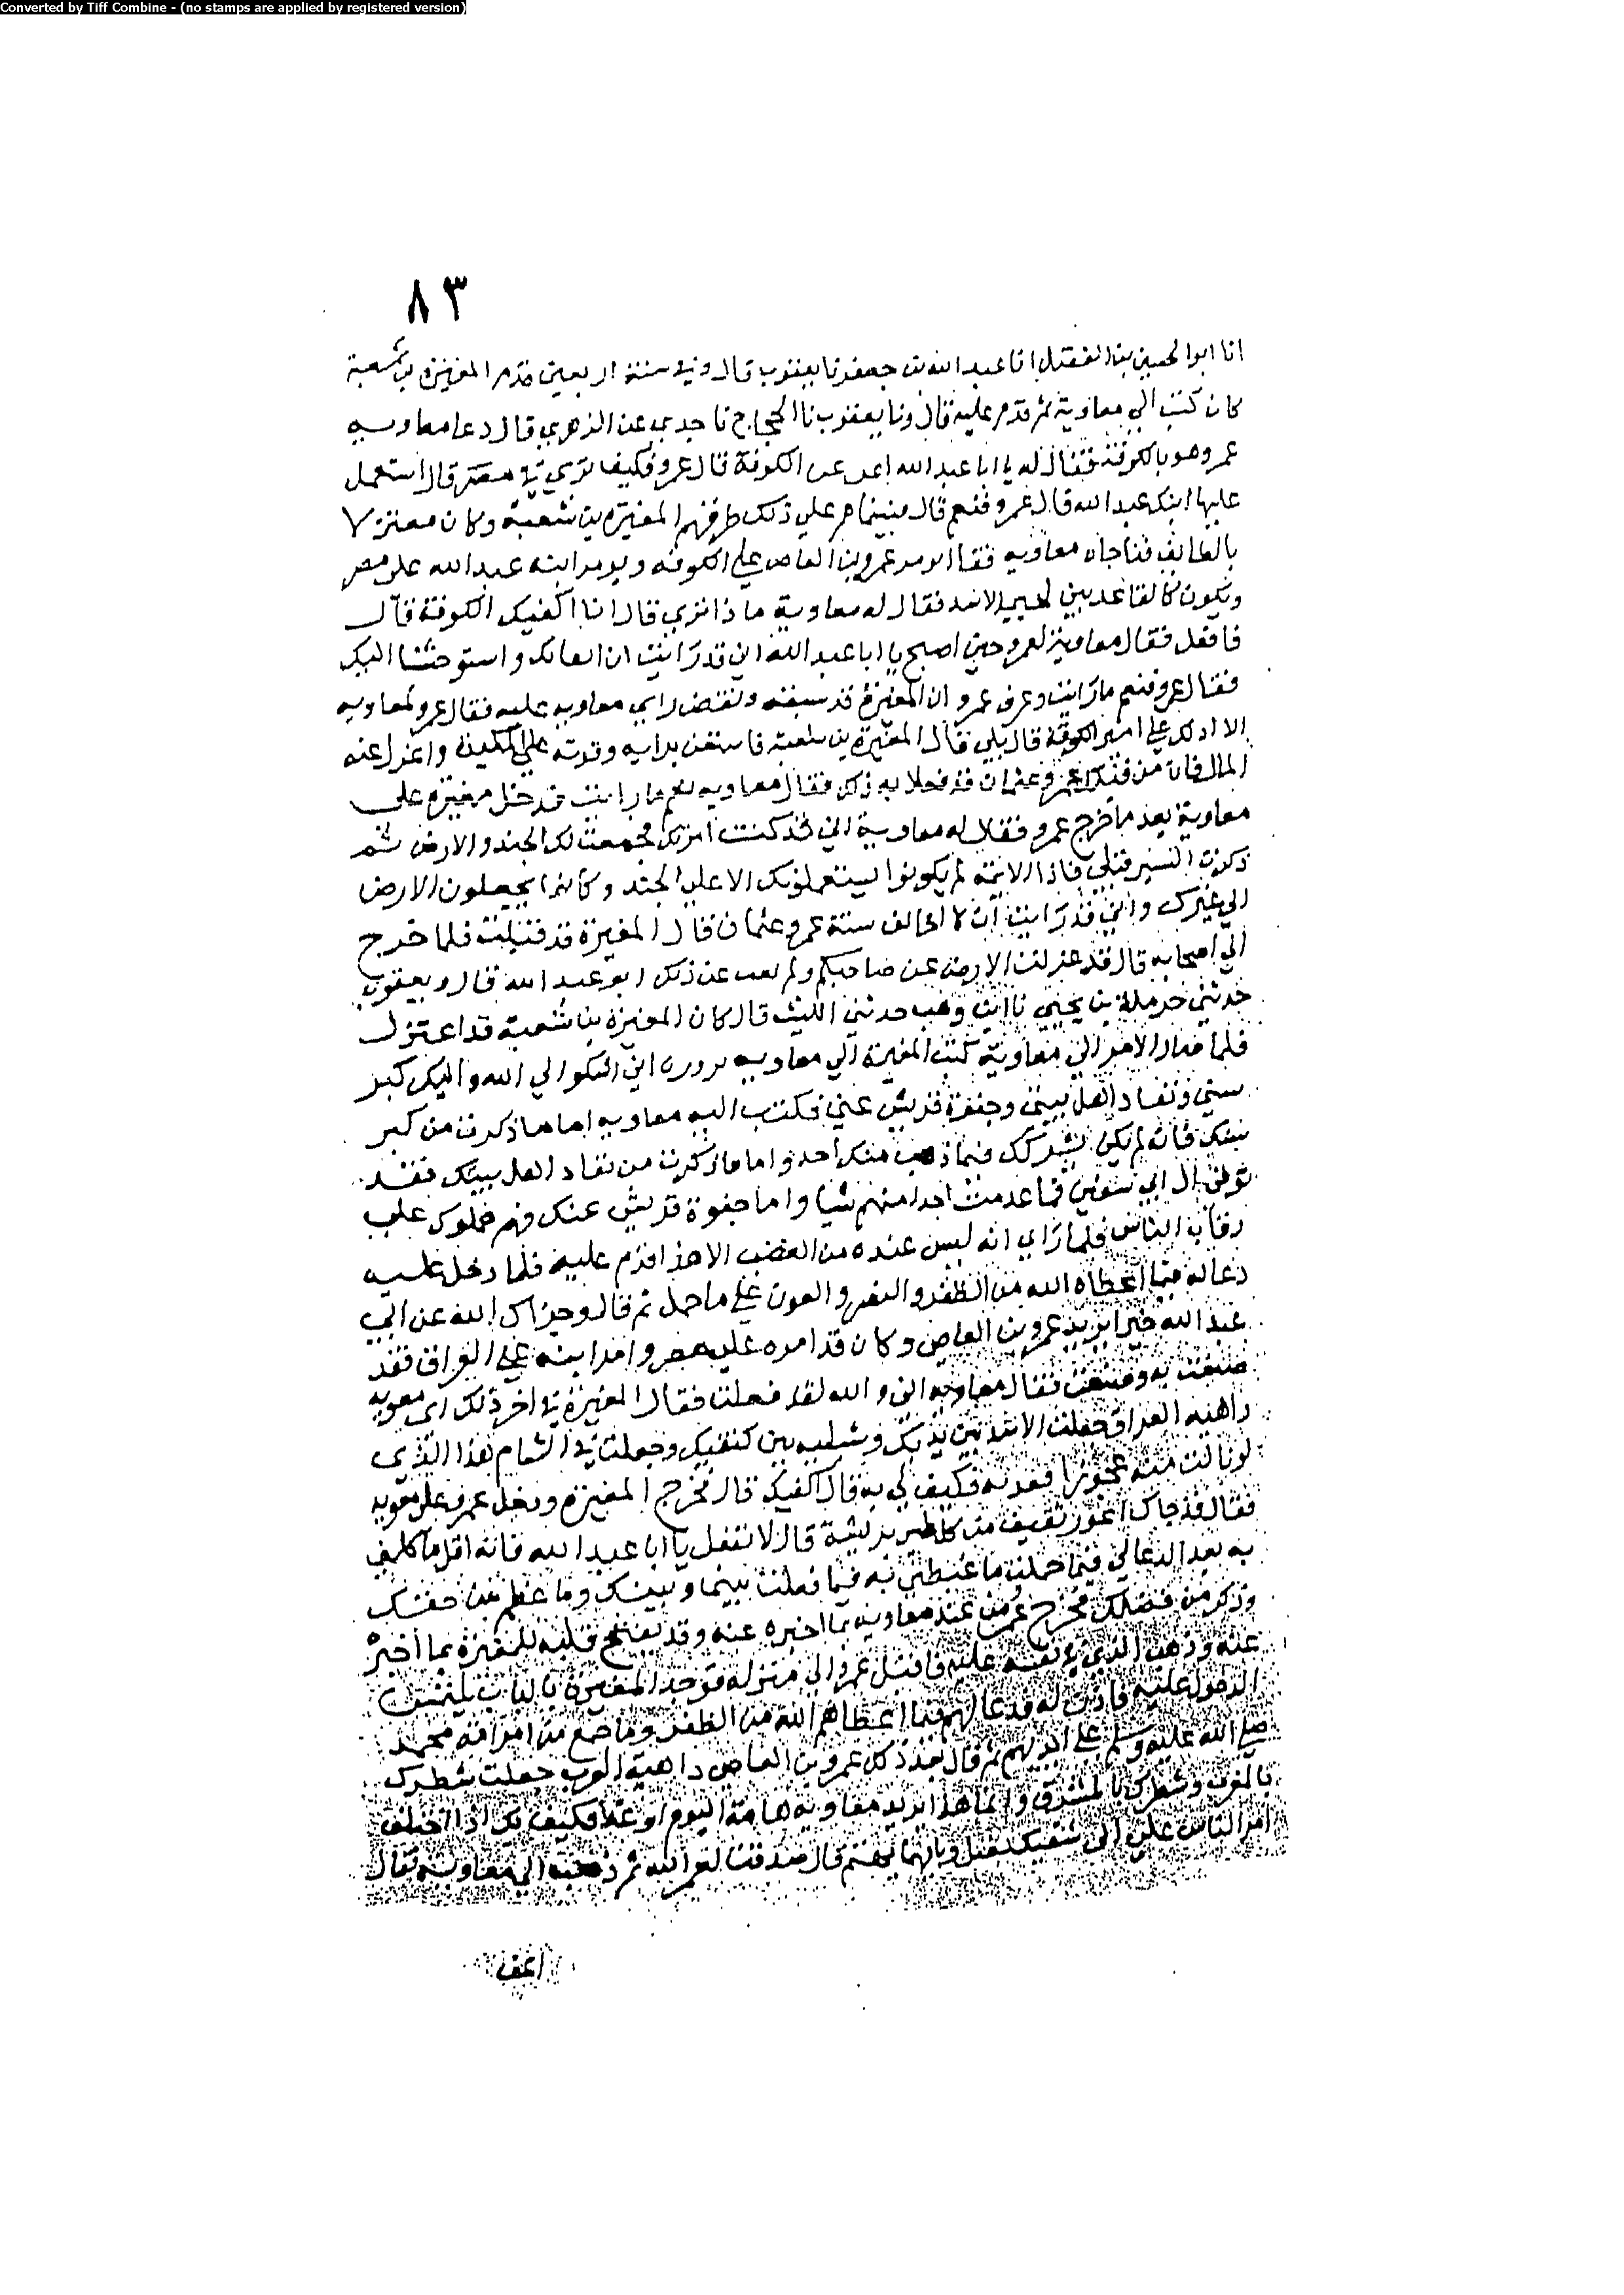 Converted by Tiff Combine - (no stamps are applied by registered version)
٨٣
انا ابو الحسين بن الفضل انا عبد الله بن جعفر نا يعقوب قال وفي سنة اربعين قدم المغيرة بن شعبة
كان كتب الي معاوية ثم قدم عليه قال ونا يعقوب نا الحجاج نا جدي عن الزهري قال دعا معاويه
عمر وهو بالكوفة فقال له يا ابا عبد الله الكوفة قال عمرو فكيف تري في مصر قال استعمل
عليها ابنك عبد الله قال عمرو فنعم قال فبينما هم علي ذلك طرقهم المغيرة بن شعبة وكان معتزلا
بالطائف فناجاه معاويه فقال تومر عمرو بن العاص علي الكوفه وتومر ابنه عبد الله علي مصر
وتكون كالقاعد بين لحيي الاسد فقال له معاوية ما ذا تري قال انا اكفيك الكوفة قال
فافعل فقال معاوية لعمرو حين اصبح يا ابا عبد الله اني قد رايت ان واستوحشنا اليك
فقال عمرو فنعم ما رايت وعرف عمرو ان المغيرة قد سبقه ونقض راي معاويه عليه فقال عمرو لمعاويه
الا ادلك علي امير الكوفة قال بلي قال المغيرة بن شعبة فاستعن برايه وقوته علي المكيدة واعزل عنه
المال فان من قبلك عمر وعثمان قد فعلا به ذلك فقال معاويه نعم ما رايت فدخل مغيرة علي
معاوية بعد ما خرج عمرو فقال له معاوية اني قد كنت امرتك فجمعت لك الجند والارض ثم
ذكرت السنة قبلي فاذا الائمة لم يكونوا يستعملونك الا علي الجند وكانوا يجعلون الارض
الي غيرك واني قد رايت ان لا اخالف سنة عمر وعثمان قال المغيرة قد قبلت فلما خرج
الي اصحابه قال قد عزلت الارض عن صاحبكم ولم عن ذلك ابو عبد الله قال ويعقوب
حدثني حرملة بن يحيي نا ابن وهب حدثني الليث قال كان المغيرة بن شعبة قد اعتزل
فلما صار الامر الي معاوية كتب المغيرة الي معاويه اني اشكو الي الله واليك كبر
سني ونفاد اهل بيتي وجفوة قريش عني فكتب اليه معاويه اما ما ذكرت من كبر
سنك فانه لم يكن يشركك فيما ذهب منك احد واما ما ذكرت من نفاد اهل بيتك فقد
توفي ال ابي سفين فما عدمت احدا منهم شيا واما جفوة قريش عنك فهم حملوك علي
رقاب الناس فلما راي انه ليس عنده من الغضب الا هذا قدم عليه فلما دخل عليه
دعا له فيما اعطاه الله من الظفر والنصر والعون علي ما حمل ثم قال وجزاك الله عن ابي
عبد الله خيرا يريد عمرو بن العاص وكان قد امره علي مصر وامر ابنه علي العراق فقد
صنعت به وصنعت فقال معاويه اني والله لقد فعلت فقال المغيرة في اخر ذلك اي معويه
داهية العرب جعلت الاسد بين يديك وشبليه بين كتفيك وجعلت في الشام هذا الذي
لو نالت منه عجوزا فكيف لي به قال اكفيك قال فخرج المغيرة ودخل عمرو علي معويه
فقال قد جاك اعور ثقيف من كل طير بريشة قال لا تفعل يا ابا عبد الله فانه اقل ما كلمني
به بعد الدعا لي فيما حملت ما غبطني به فيما فعلت بينا وبينك وما عظم من حقك
وذكر من فضلك فخرج عمرو من عند معاويه بما اخبره عنه وقد نصح قلبه للمغيرة بما اخبر
عنه وذهب الذي في نفسه عليه فاقبل عمرو الي منزله فوجد المغيرة بالباب يلتمس
الدخول عليه فاذن له فدعا لهم فيما اعطاهم الله من الظفر وما صنع من امر امة محمد
صلي الله عليه وسلم علي ايديهم ثم قال بعد ذلك عمرو بن العاص داهية العرب جعلت شطرك
بالمغرب وشطرك بالمشرق وانما هذا يريد معاوية هامة اليوم او غد فكيف بك اذا اختلف
امر الناس علي اي شقيك تقبل وبايهما تهتم قال صدقت لعمر الله ثم ذهب الي معاوية فقال
اعف